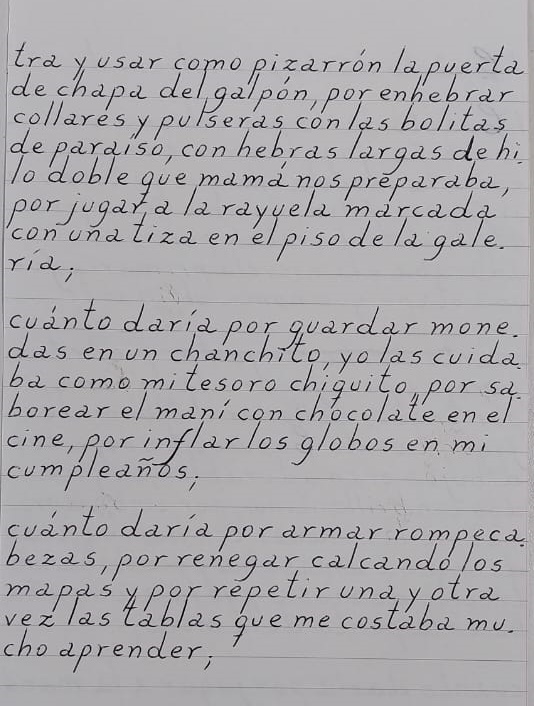 tra y usar como pizarrón la puerta
de chapa del galpón, por enhebrar
collares y pulseras con las bolitas
de paraíso, con hebras largas de hi.
lo doble que mamá nos preparaba,
por jugar a la rayuela marcada
con una tiza en el piso de la gale.
ría;
cuánto daría por guardar mone.
das en un chanchito, yo las cuida.
ba como mi tesoro chiquito, por sa.
borear el maní con chocolate en el
cine, por inflar los globos en mi
cumpleaños;
cuánto daría por armar rompeca.
bezas, por renegar calcando los
mapas y por repetir una y otra
vez las tablas que me costaba mu.
cho aprender;